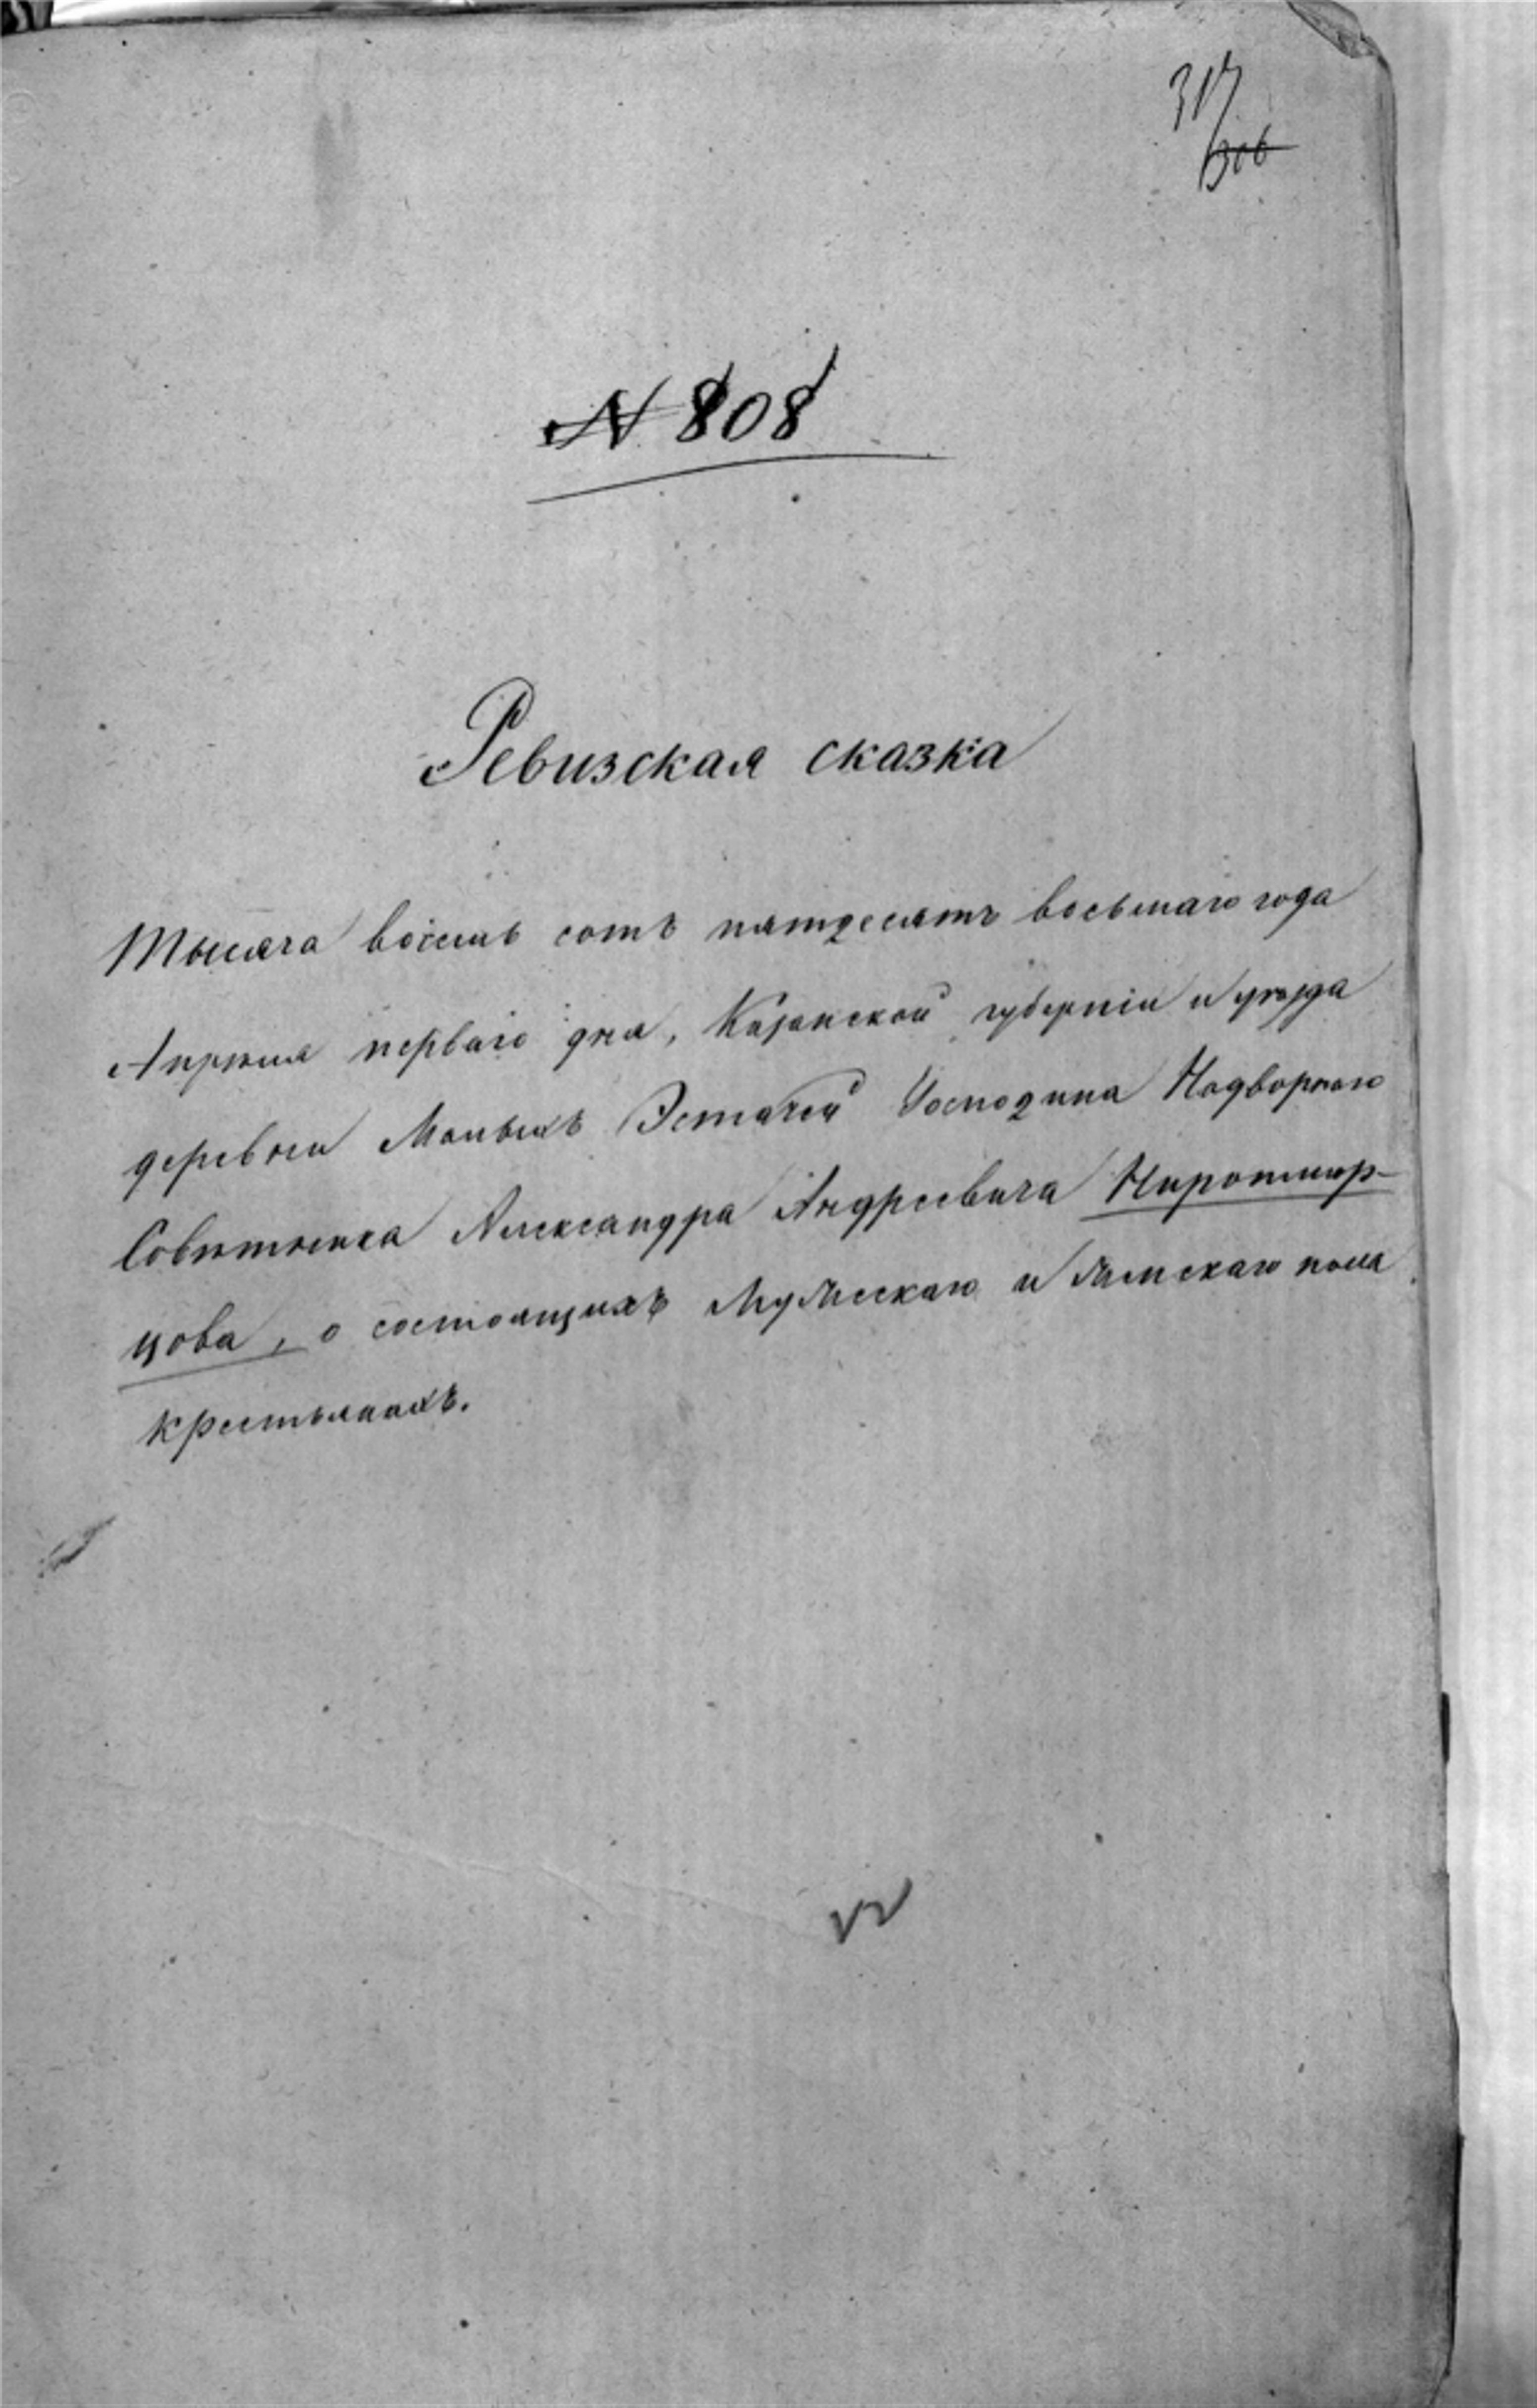 317
306
№ 808
Ревизская сказка
Тысяча восемь сотъ пятдесятъ восьмаго года
Апрѣля перваго дня, Казанской губерніи и уѣзда
деревни Малыхъ Эстачей Господина Надворнаго
Совѣтника Александра Андреевича Ниротмор-
цова, о состоящихъ Мужескаго и Женскаго пола
крестьянахъ.